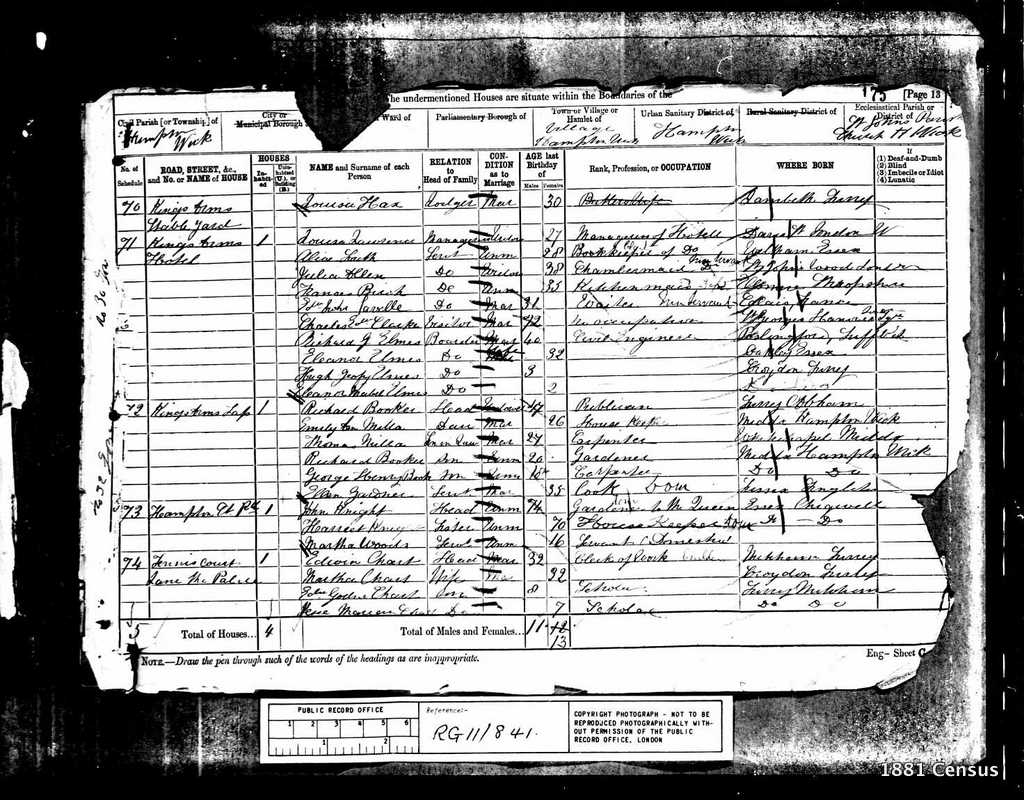 The undermentioned Houses are situate within the Boundaries of the
175 [Page 13
Civil Parish [or Township] of
Hampton Wick
City or
Municipal Borough
Ward of
Parliamentary Borough of
Town or Village or
Hamlet of
Village
Hampton Wick
Urban Sanitary District of
Hampton
Wick
Rural Sanitary District of
Ecclesiastical Parish or
District of
St Johns
Church H Wick
No. of
Schedule
ROAD, STREET, &c.,
and No. or NAME of HOUSE
HOUSES
Inhabit-
ed
NAME and Surname of each
Person
RELATION
to
Head of Family
CON-
DITION
as to
Marriage
AGE last
Birthday
of
Males
Females
Rank, Profession, or OCCUPATION
WHERE BORN
If
(1) Deaf-and-Dumb
(2) Blind
(3) Imbecile or Idiot
(4) Lunatic
70 Kings Arms Louisa Hax Lodger Mar 30 Lambeth Surrey
Stable Yard
71 Kings Arms 1 Louisa Lawrence Manager 27 Manageress of Hotell
Hotel Alice Serv Unm 28 Book keeper of Do Essex
Julia Allen Do Widow 38 Chambermaid St Johns Wood London
Frances Do Unm 35 Kitchen maid
Do Mar 31 Waiter Calais France
Charles Clarke Visitor Mar 72 No occupation St Georges Hanover Sqr
Richard J Elmes Boarder Mar 40 Civil Engineer Suffolk
Eleanor Elmes Do 32 Oakley Essex
Hugh Elmes Do 3 Croydon Surrey
Eleanor Mabel Elmes Do 2
72 Kings Arms Tap 1 Richard Booker Head Widower 47 Publican Surrey Cobham
Emily Ann Mella Daur Mar 26 House Keeper Middx Hampton Wick
Son in Law Mar 27 Carpenter Whitechapel Middx
Richard Booker Son Unm 20 Gardener Middx Hampton Wick
George Henry Book Son Unm 18 Carpenter Do Do
Ellen Gardner Serv Mar 35 Cook Dom Sussex
73 Hampton Ct Rd 1 John Knight Head Unm 74 Gardener to the Queen Essex Chigwell
Harriet Knight Sister Unm 70 House Keeper Dom Do Do
Martha Woods Serv Unm 16 Servant Domestic
74 Tennis Court 1 Edwin Chart Head Mar 32 Clerk of Work Mitcham Surrey
Lane The Palace Martha Chart Wife Mar 32 Croydon Surrey
Godwin Chart Son 8 Scholar Surrey Mitcham
Chart Do 7 Scholar Do Do
5 Total of Houses... 4 Total of Males and Females... 11 12
13
NOTE.—Draw the pen through such of the words of the headings as are inappropriate.
Eng— Sheet
PUBLIC RECORD OFFICE
1 2 3 4 5 6
1 2
Reference:-
RG11/841.
COPYRIGHT PHOTOGRAPH - NOT TO BE
REPRODUCED PHOTOGRAPHICALLY WITH-
OUT PERMISSION OF THE PUBLIC
RECORD OFFICE, LONDON
1881 Census